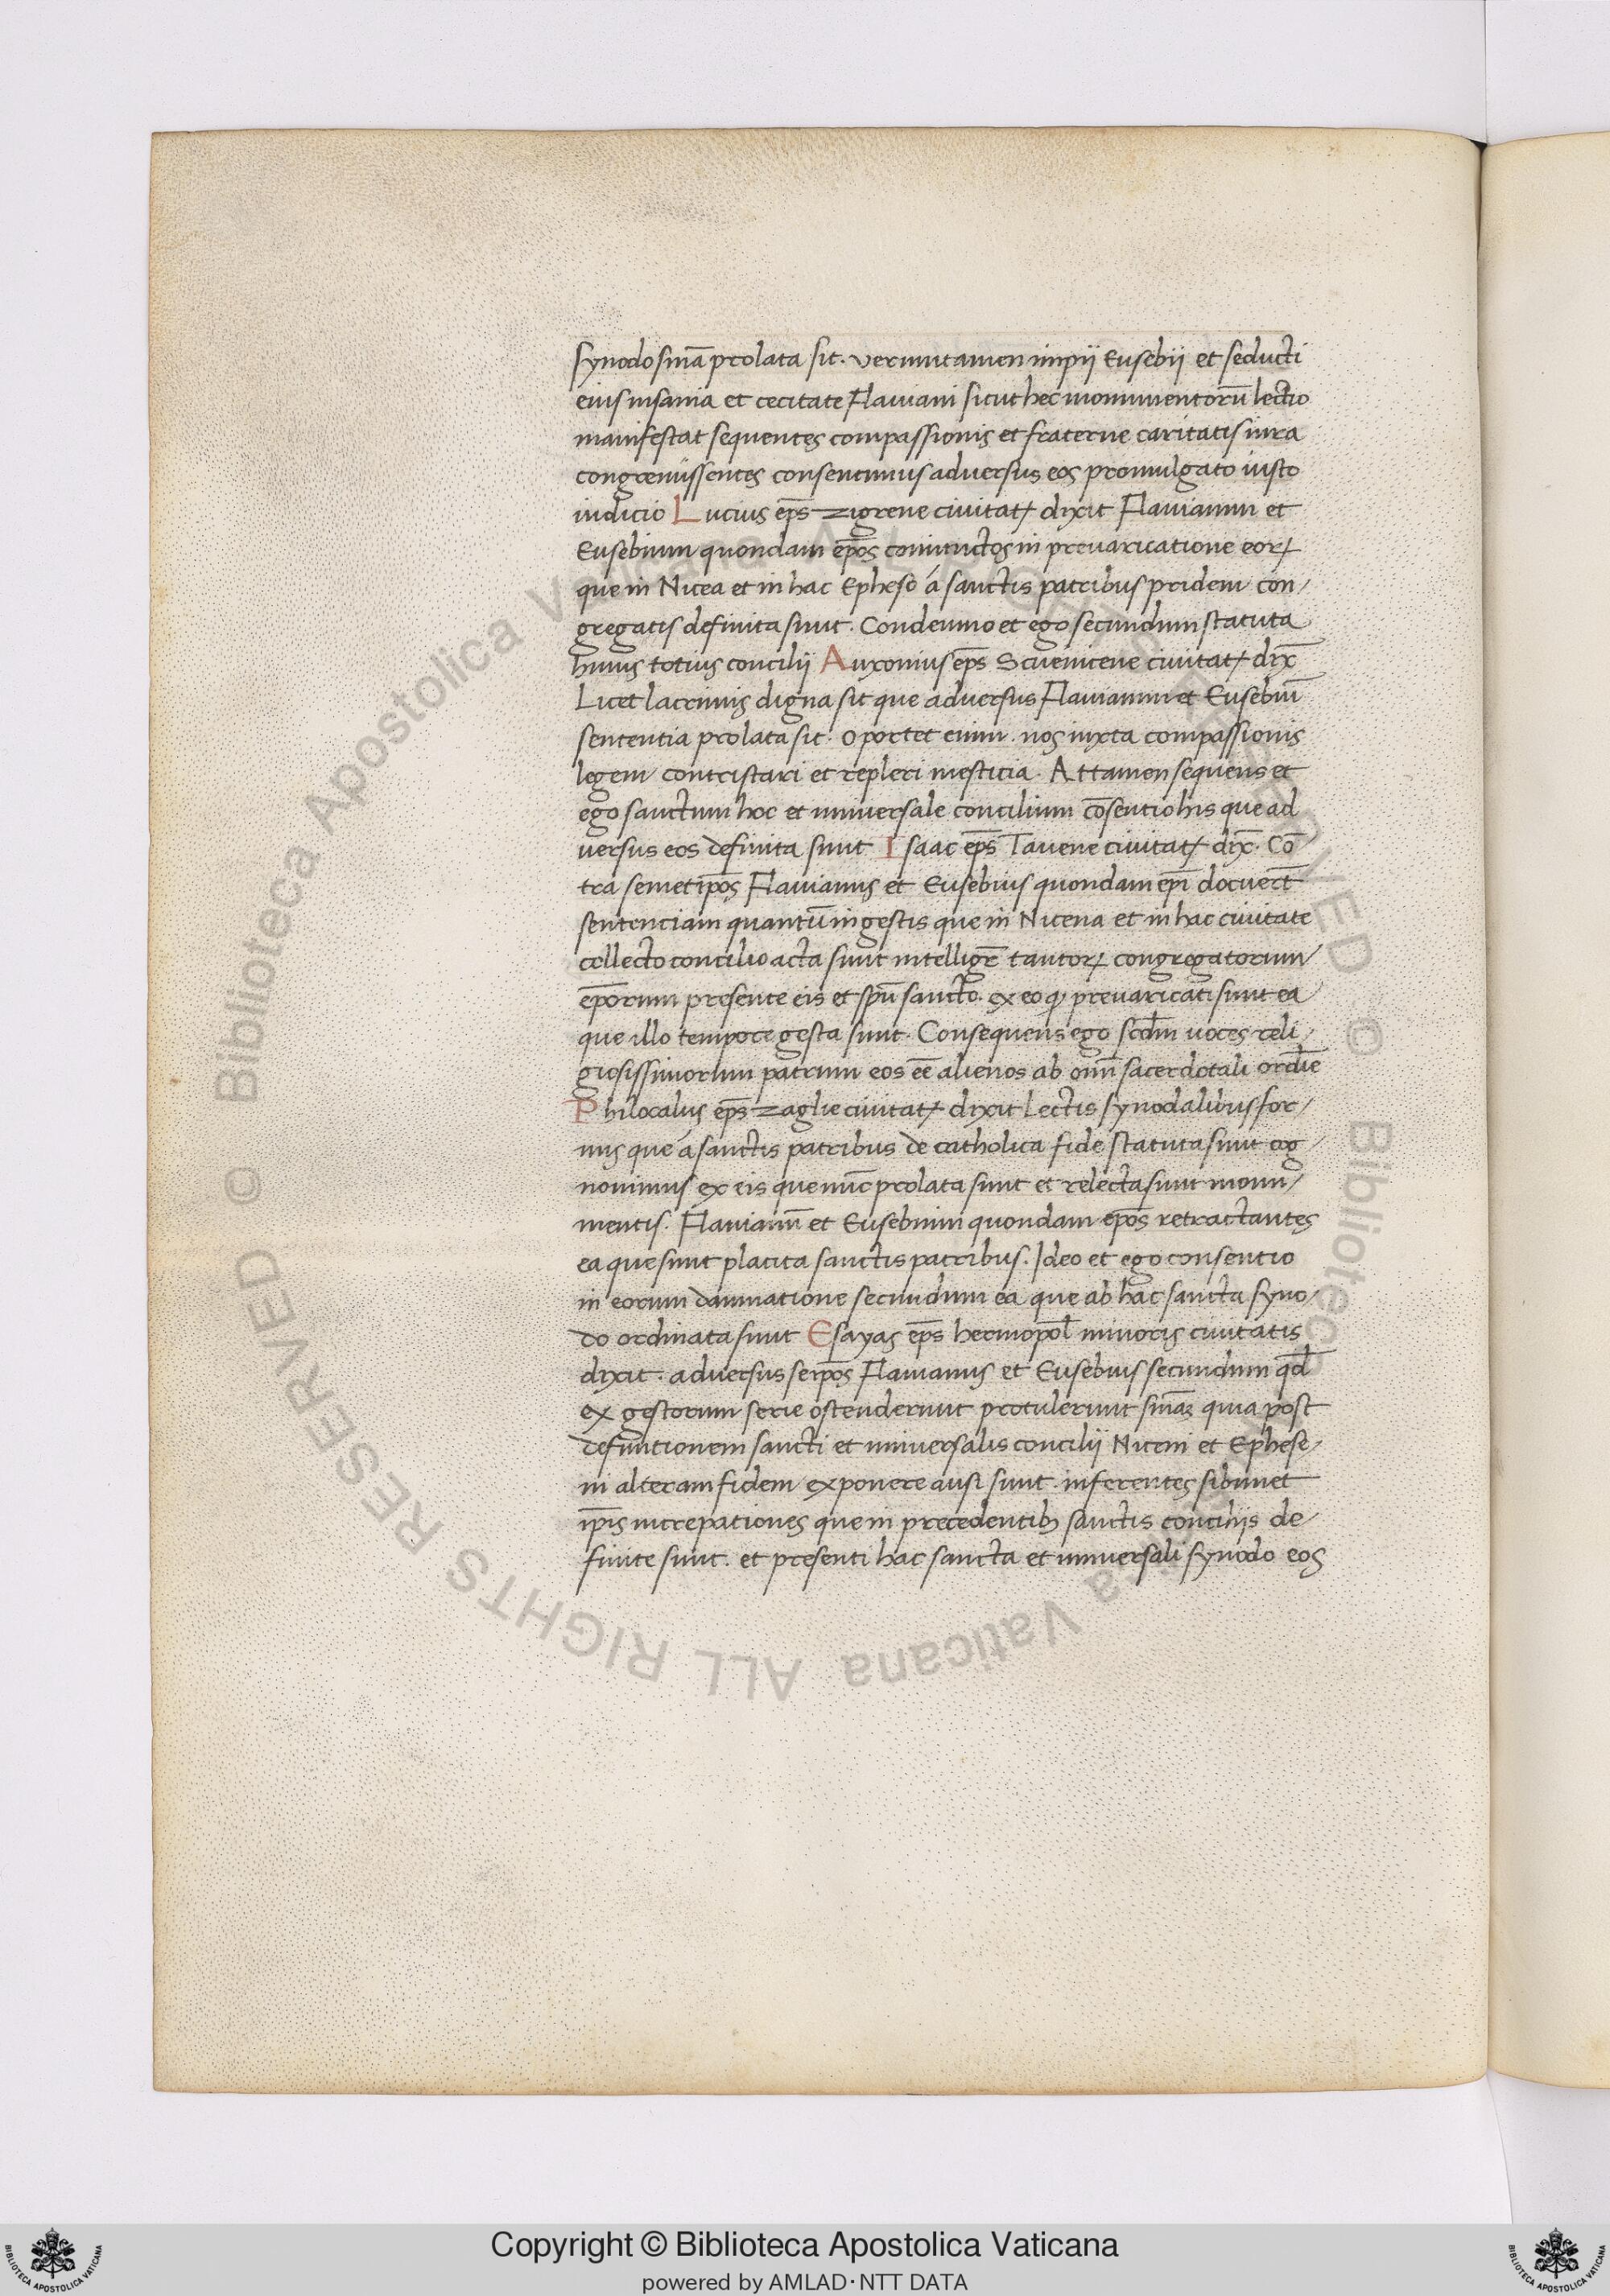 synodo snīa prolata sit. verumtamen impii Eusebii et seducti
eius insania et cecitate Flaviani sicut hec monumentorū lectio
manifestat sequentes compassionis et fraterne caritatis iura
congemissentes consentimus adversus eos promulgato iusto
iudicio Lucius ep̄s zigrene civitatꝭ dixit Flavianum et
Eusebium quondam ep̄os coniunctos in prevaricatione eorꝝ
que in Nicea et in hac Epheso á sanctis patribus pridem con/
gregatis definita sunt. Condemno et ego secundum statuta
huius totius concilii Auxonius ep̄s Scuenicene civitatꝭ dix̄
Licet lacrimis digna sit que adversus Flavianum et Eusebiū
sententia prolata sit. oportet enim nos iuxta compassionis
legem contristari et repleri mesticia. Attamen sequens et
ego sanctum hoc et universale concilium cōsentio his que ad
versus eos definita sunt Isaac ep̄s Tavene civitatꝭ dix̄. Cō
tra semetip̄os Flavianus et Eusebius quondam ep̄i docuer̄t
sentenciam quantū in gestis que in Nicena et in hac civitate
collecto concilio acta sunt intelligr̄ tantorꝝ congregatorum
ep̄orum presente eis et sp̄u sancto. ex eo ꝙ prevaricati sunt ea
que illo tempore gesta sunt. Consequens ego scd̄m voces reli/
giosissimorum patrum eos ēē alienos ab om̄i sacerdotali ordīe
Philocalus ep̄s zaglie civitatꝭ dixit Lectis synodalibus for/
mis que á sanctis patribus de catholica fide statuta sunt cog/
novimus ex eis que nūc prolata sunt et relecta sunt monu/
mentis. Flavianū et Eusebium quondam ep̄os retractantes
ea que sunt placita sanctis patribus. Ideo et ego consentio
in eorum damnatione secundum ea que ab hac sancta syno/
do ordinata sunt Esayas ep̄s hermopol̄ minoris civitatis
dixit. adversus seip̄os Flavianus et Eusebius secundum qd̄
ex gestorum serie ostenderunt protulerunt snīaꝫ quia post
definitionem sancti et universalis concilii Niceni et Ephese/
ni alteram fidem exponere ausi sunt. inferentes sibimet
ip̄is increpationes que in precedentibꝫ sanctis conciliis de/
finite sunt. et presenti hac sancta et universali synodo eos
© Biblioteca Apostolica Vaticana ALL RIGHTS RESERVED © Biblioteca Apostolica Vaticana ALL RIGHTS RESERVED
Copyright © Biblioteca Apostolica Vaticana
powered by AMLAD·NTT DATA
BIBLIOTECA APOSTOLICA VATICANA
BIBLIOTECA APOSTOLICA VATICANA